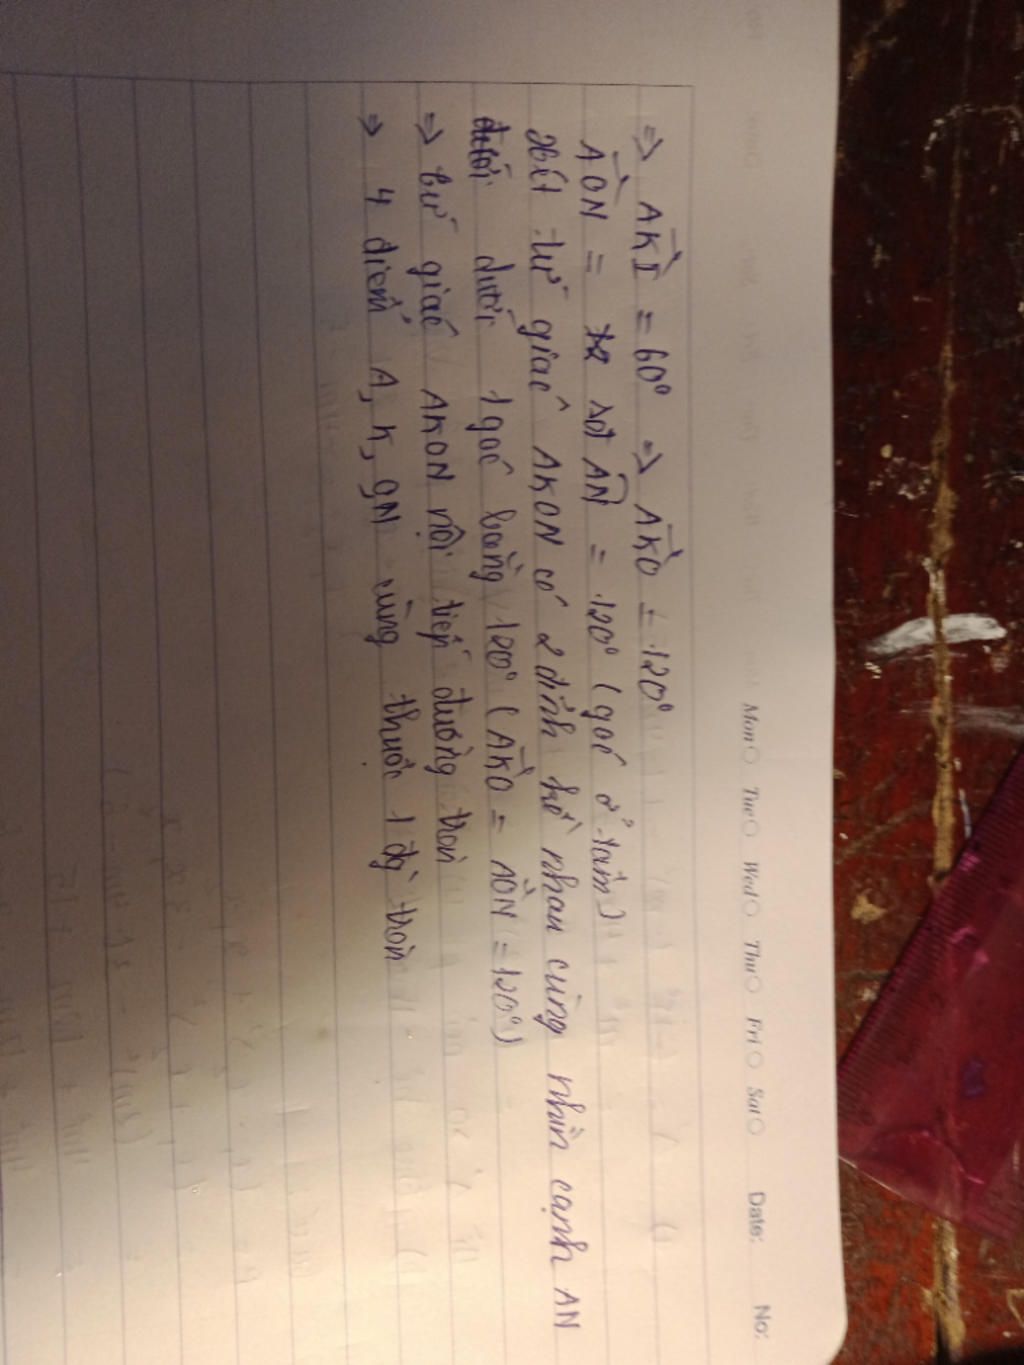 Mon Tue Wed Thu Fri Sat Date: No:
=> AKI = 60° => AKO = 120°
AON = sđ AN = 120° (góc ở tâm)
Xét tứ giác AKON có 2 đỉnh kề nhau cùng nhìn cạnh AN
dưới 1 góc bằng 120° (AKO = AON = 120°)
=> tứ giác AKON nội tiếp đường tròn
=> 4 điểm A, K, O, N cùng thuộc 1 đg tròn